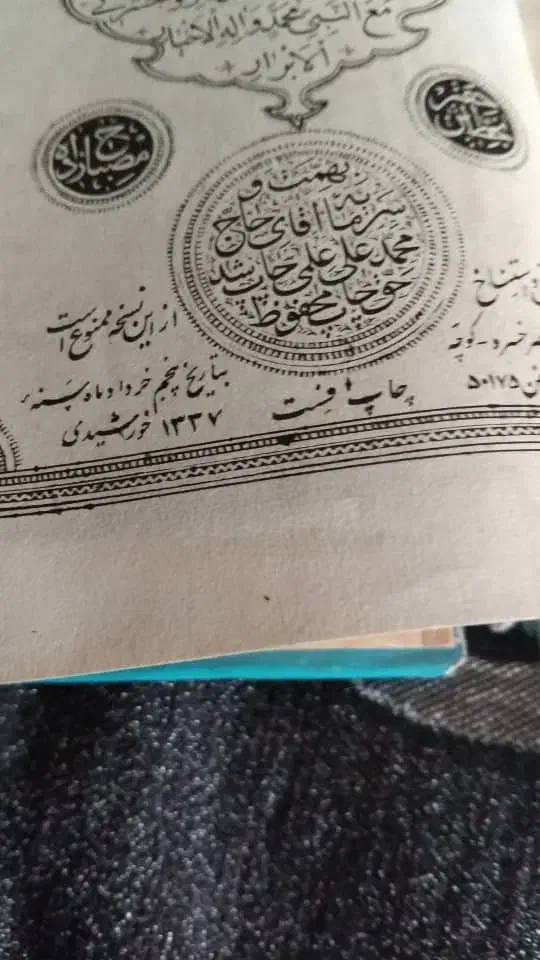 مع النبی محمد واله الاخیار
الابرار
بهمت و
سرمایه
آقای حاج
محمد علی علمی چاپ شد
حق چاپ محفوظ
از این نسخه ممنوع است
بتاریخ پنجم خرداد ماه سنه
۱۳۳۷ خورشیدی
چاپ افست
استنساخ
خسرو - کوچه
۵۰۱۷۵